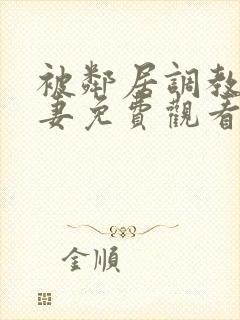 被鄰居調教
妻免費觀看
金順